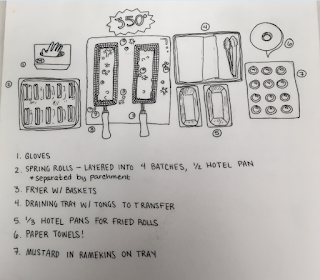 350°
1
2
3
4
5
6
7
1. GLOVES
2. SPRING ROLLS - LAYERED INTO 4 BATCHES, 1/2 HOTEL PAN
*separated by parchment
3. FRYER W/ BASKETS
4. DRAINING TRAY W/ TONGS TO TRANSFER
5. 1/3 HOTEL PANS FOR FRIED ROLLS
6. PAPER TOWELS!
7. MUSTARD IN RAMEKINS ON TRAY